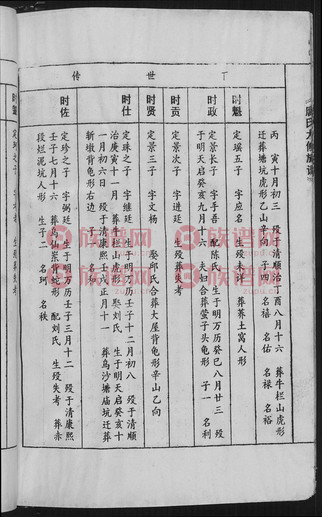 丁世传
丙寅十月初三 殁于清顺治丁酉八月十六 葬牛栏山虎形
迁葬塘坑虎形乙山辛向 子四 名禧 名佑 名禄 名裕
时魁 定瑀五子 字应名 生殁未祥 葬荞土窝人形
时政 定景长子 字手吾 配陈氏 生于明万历癸巳八月廿三 殁
于明天启癸亥九月十六 夫妇合葬萤子头龟形 子一 名利
时贡 定景次子 字进廷 生殁葬失考
时贤 定景三子 字文杨 娶邱氏合葬大屋背龟形辛山乙向
时仕 定珠之子 字继廷 生于明万历壬子十二月初八 殁于清顺
治庚寅十一月 葬牛栏山虎形 娶刘氏 生于明天启癸亥十
一月初六日 殁于清康熙壬戍正月十一 葬乌沙塘庙坑迁葬
斩墩背龟形右边 子
时佐 定珍之子 字弼廷 生于明万历壬子三月十二 殁于清康熙
壬子七月十六 葬乌仙崇背蛇形 配刘氏 生殁失考 葬赤
段烂泥坑人形 生子二 名珂 名秩
族谱网